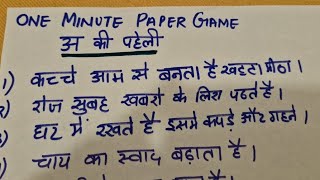 ONE MINUTE PAPER GAME
अ की पहेली
1) कच्चे आम से बनता है खट्टा मीठा।
2) रोज सुबह खबरो के लिए पढते है।
3) घर में रखते है इसमे कपड़े और गहने।
4) चाय का स्वाद बढ़ाता है।